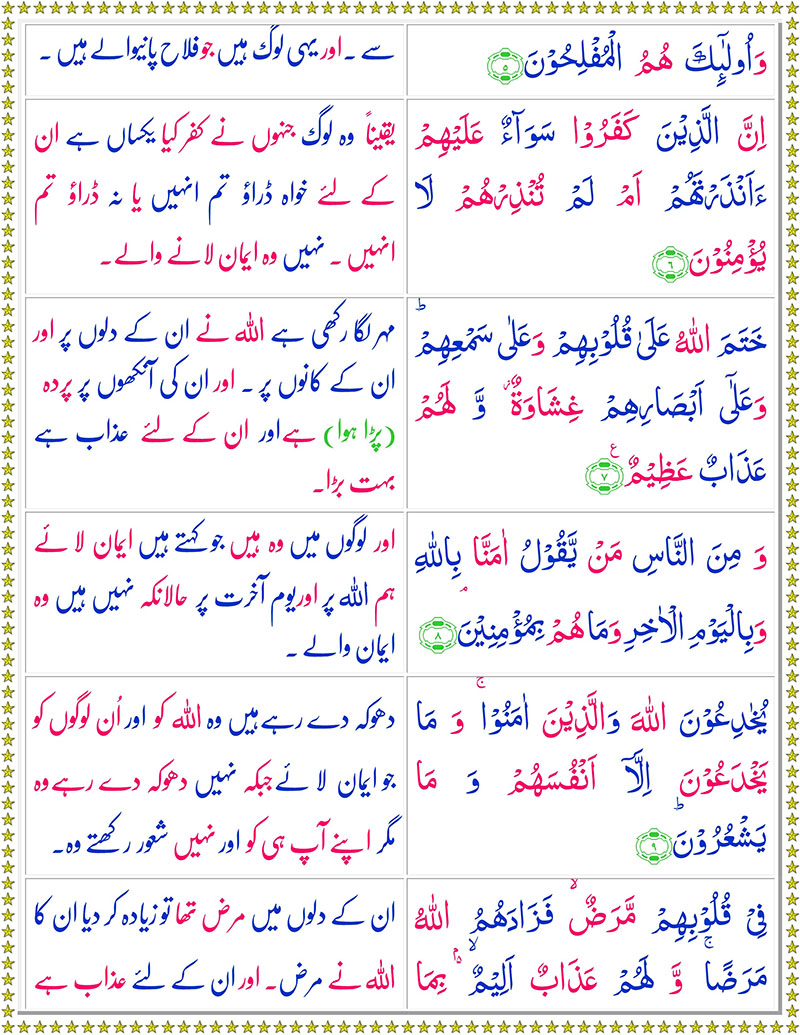 وَاُولٰٓئِكَ هُمُ الْمُفْلِحُوْنَ ﴿۵﴾
سے ۔ اور یہی لوگ ہیں جو فلاح پانیوالے ہیں ۔
اِنَّ الَّذِيْنَ كَفَرُوْا سَوَآءٌ عَلَيْهِمْ
ءَاَنْذَرْتَهُمْ اَمْ لَمْ تُنْذِرْهُمْ لَا
يُؤْمِنُوْنَ ﴿۶﴾
یقیناً وہ لوگ جنہوں نے کفر کیا یکساں ہے ان
کے لئے خواہ ڈراؤ تم انہیں یا نہ ڈراؤ تم
انہیں ۔ نہیں وہ ایمان لانے والے۔
خَتَمَ اللّٰهُ عَلٰى قُلُوْبِهِمْ وَعَلٰى سَمْعِهِمْ ؕ
وَعَلٰٓى اَبْصَارِهِمْ غِشَاوَةٌ وَّ لَهُمْ
عَذَابٌ عَظِيْمٌ ﴿۷﴾ ع
مہر لگا رکھی ہے اللہ نے ان کے دلوں پر اور
ان کے کانوں پر ۔ اور ان کی آنکھوں پر پردہ
(پڑا ہوا) ہے اور ان کے لئے عذاب ہے
بہت بڑا۔
وَ مِنَ النَّاسِ مَنْ يَّقُوْلُ اٰمَنَّا بِاللّٰهِ
وَبِالْيَوْمِ الْاٰخِرِ وَمَا هُمْ بِمُؤْمِنِيْنَ ﴿۸﴾
اور لوگوں میں وہ ہیں جو کہتے ہیں ایمان لائے
ہم اللہ پر اور یوم آخرت پر حالانکہ نہیں ہیں وہ
ایمان والے ۔
يُخٰدِعُوْنَ اللّٰهَ وَالَّذِيْنَ اٰمَنُوْا ۚ وَ مَا
يَخْدَعُوْنَ اِلَّآ اَنْفُسَهُمْ وَ مَا
يَشْعُرُوْنَ ؕ ﴿۹﴾
دھوکہ دے رہے ہیں وہ اللہ کو اور اُن لوگوں کو
جو ایمان لائے جبکہ نہیں دھوکہ دے رہے وہ
مگر اپنے آپ ہی کو اور نہیں شعور رکھتے وہ۔
فِيْ قُلُوْبِهِمْ مَّرَضٌ ۙ فَزَادَهُمُ اللّٰهُ
مَرَضًا ۚ وَّ لَهُمْ عَذَابٌ اَلِيْمٌ ۙ۬ بِمَا
ان کے دلوں میں مرض تھا تو زیادہ کر دیا ان کا
اللہ نے مرض۔ اور ان کے لئے عذاب ہے